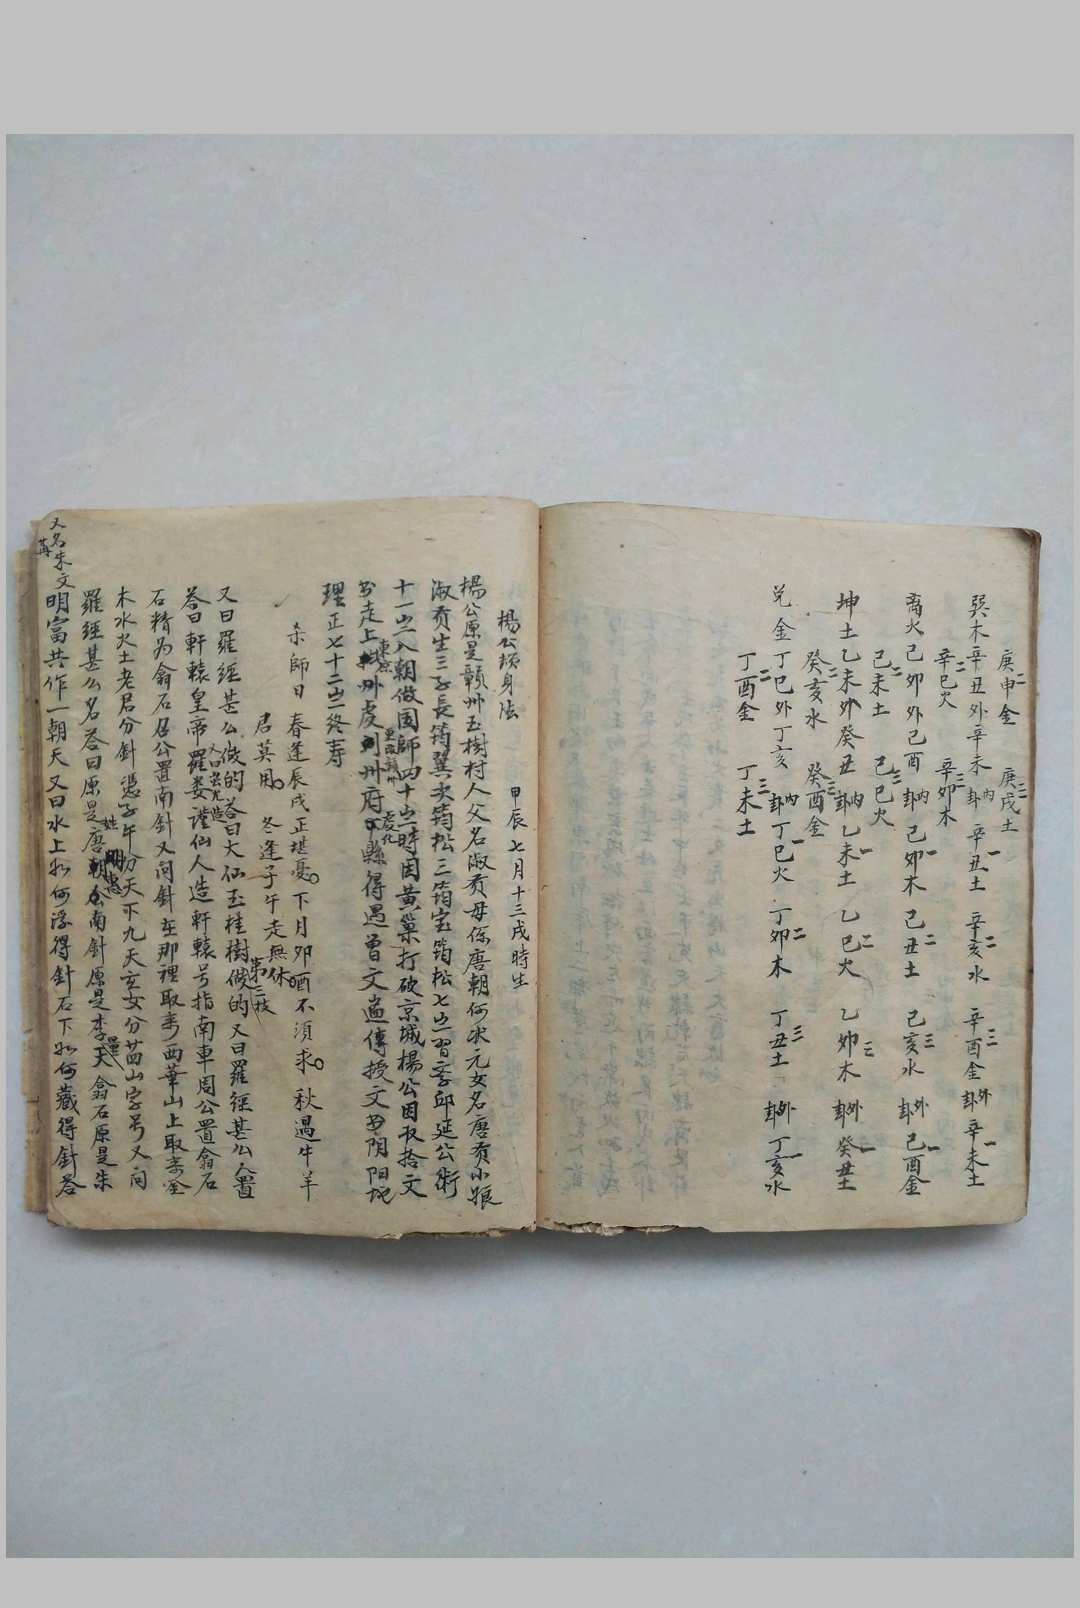 庚申金 庚戌土
巽木辛丑外辛未内卦 辛丑土 辛亥水 辛酉金外卦辛未土
辛巳火 辛卯木
离火己卯外己酉内卦 己卯木 己丑土 己亥水外卦己酉金
己未土 己巳火
坤土乙未外癸丑内卦乙未土 乙巳火 乙卯木外卦癸丑土
癸亥水 癸酉金
兑金丁巳外丁亥内卦丁巳火 丁卯木 丁丑土外卦丁亥水
丁酉金 丁未土
楊公 身法 甲辰七月十三戌時生
楊公原是贛州玉樹村人父名淑贡母係唐朝何氏元女名唐贡小娘
淑贡生三子長筠翼次筠松三筠宝筠松七岁習李邱延公術
十一岁入朝做國師四十岁時因黄巢打破京城楊公因收拾文
书走上 州虔 州府 縣得遇曾文辿傳授文书阴阳地
理正七十二岁终寿
杀師日 春逢辰戌正堪憂 下月卯酉不須求 秋遇牛羊
君莫用 冬逢子午走無休 第三枝
又曰羅經甚公做的荅曰大仙玉桂樹做的又曰羅經甚公人置
荅曰軒轅皇帝羅娄 仙人造軒轅号指南車周公置翕石
石精为翕石召公置南針又问針在那裡取来西華山上取来金
木水火土老君分針憑子午分天下九天玄女分廿四山字号又问
羅經甚么名荅曰原是唐朝 南針原是李天 翕石原是朱
明富共作一朝天又曰水上如何浮得針石下如何藏得針荅
又名朱文